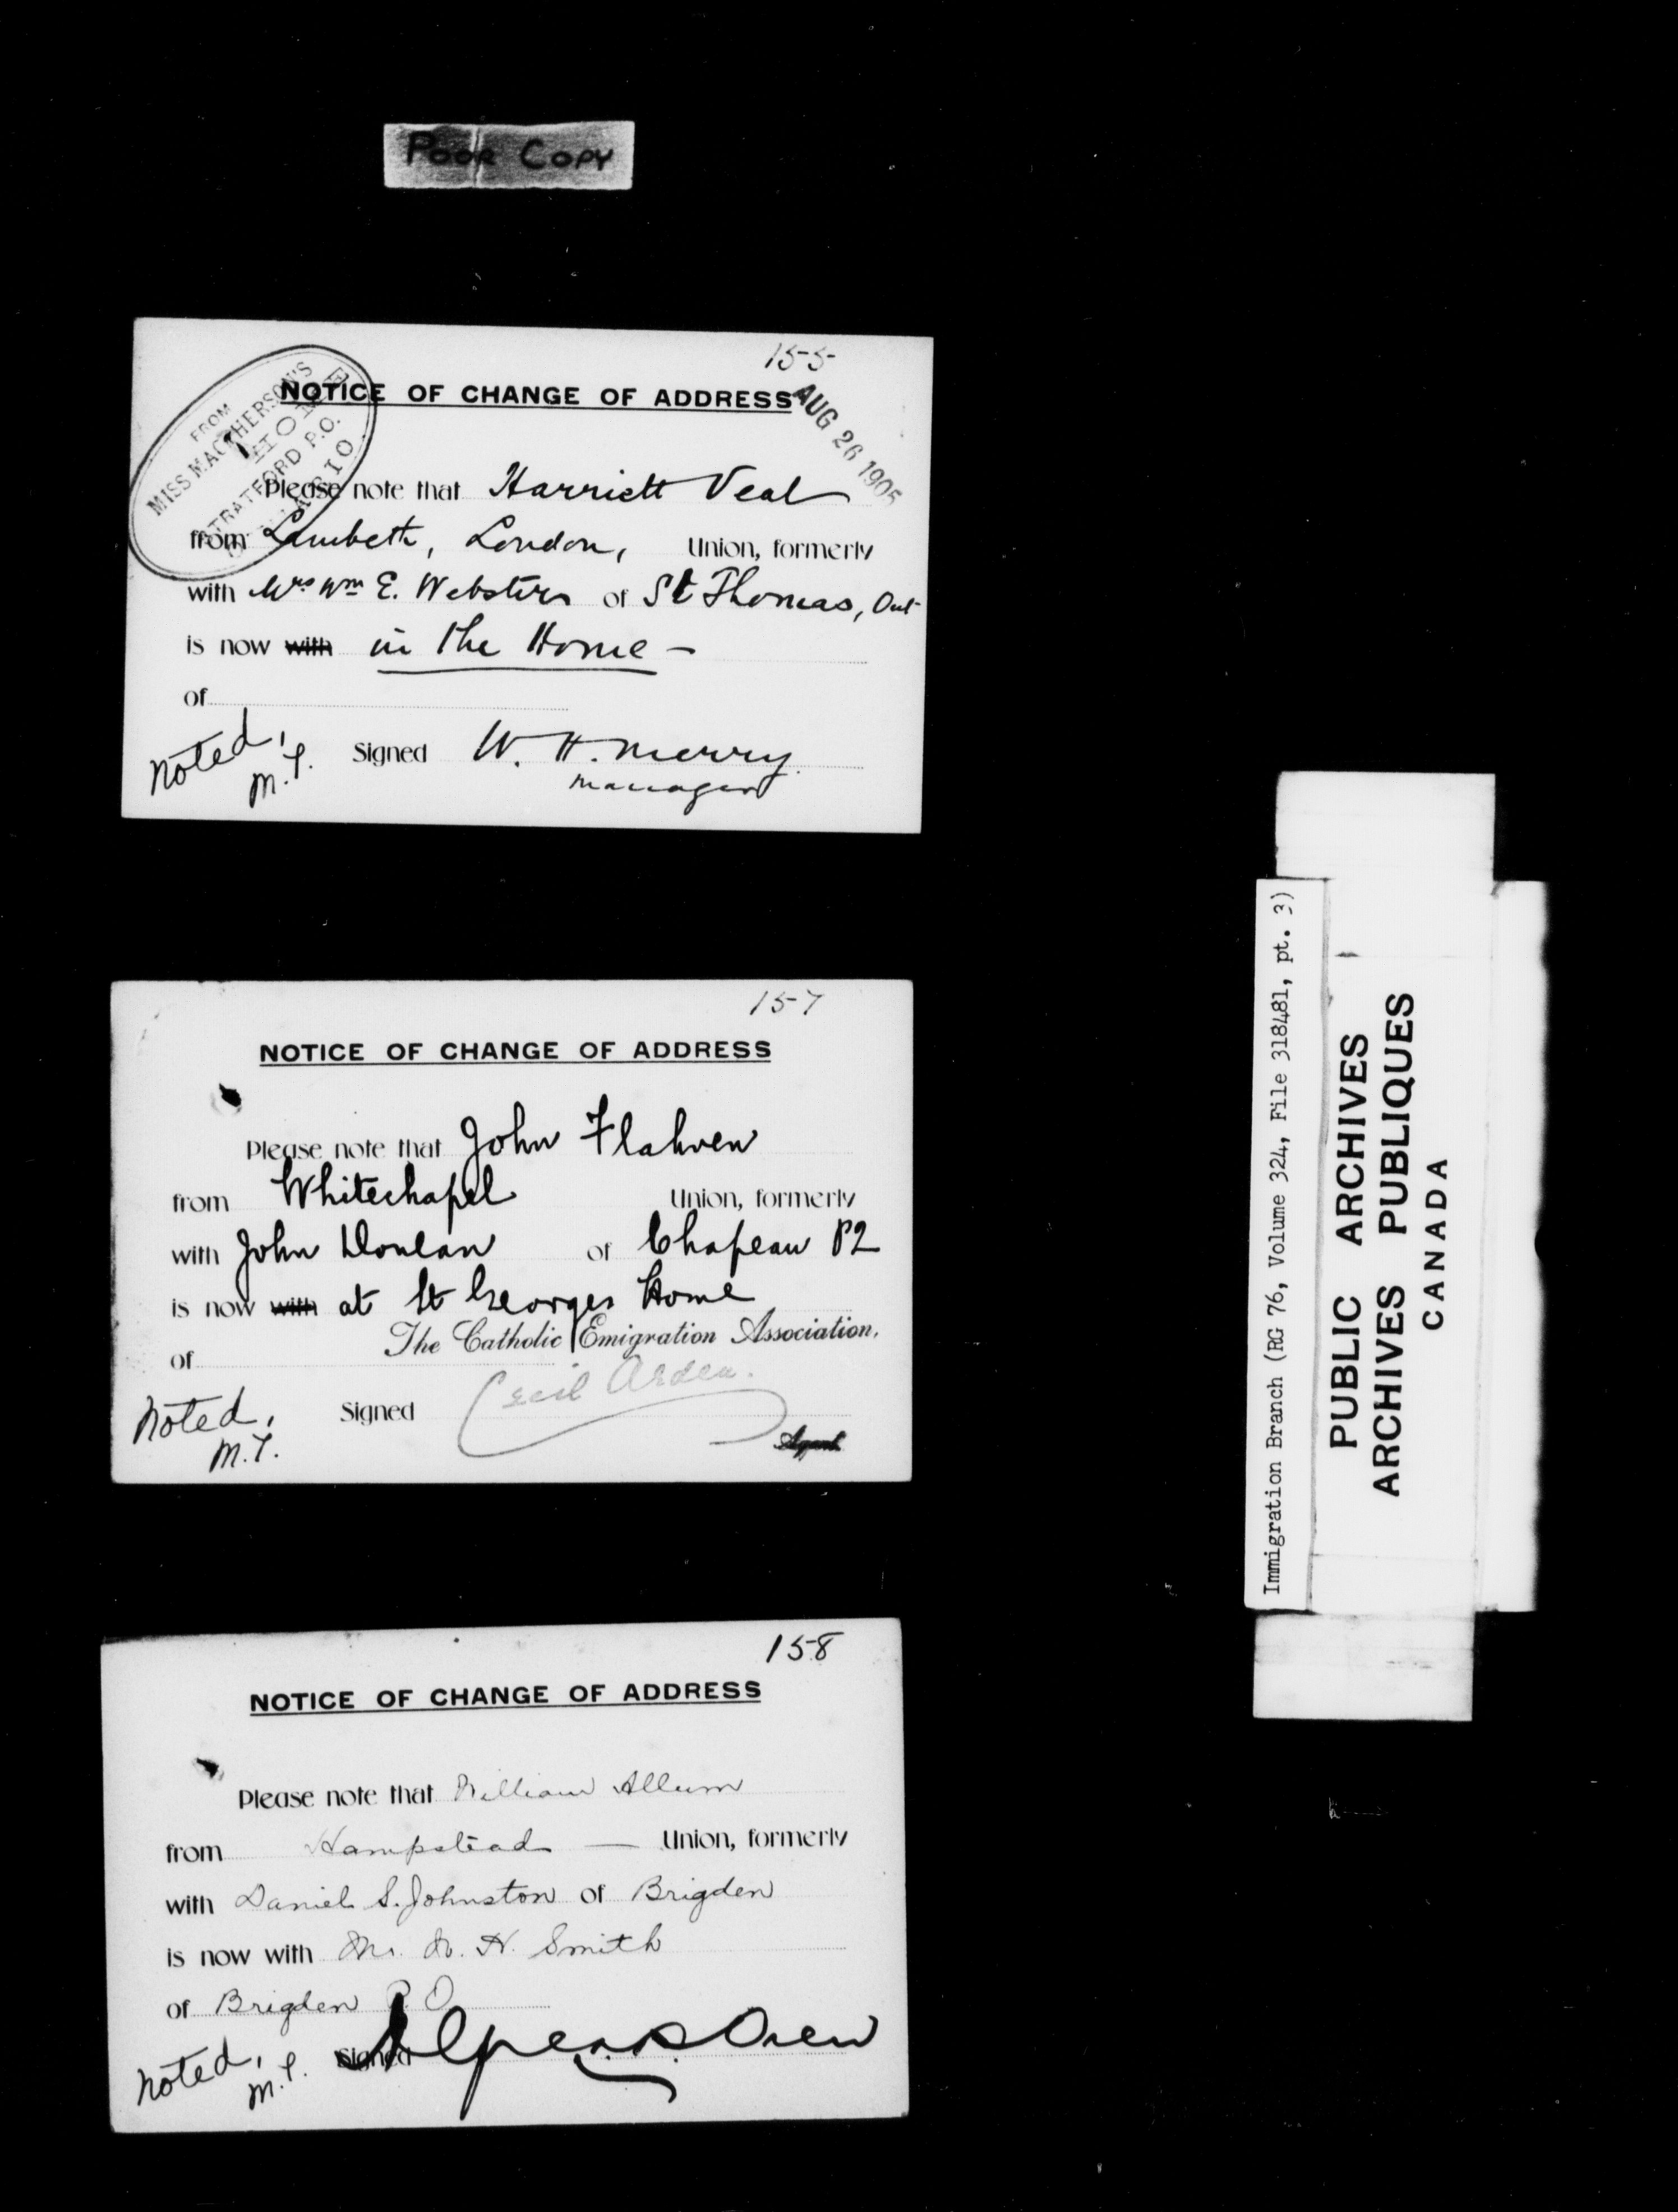 POOR COPY
155
NOTICE OF CHANGE OF ADDRESS
AUG 26 1905
FROM
MISS MACPHERSON'S
HOME
STRATFORD P.O.
ONTARIO
Please note that Harriett Veal
from Lambeth, London, Union, formerly
with Mrs Wm E. Websters of St Thomas, Ont
is now with in the Home -
of
Noted, Signed W. H. Merry
M.T. manager
157
NOTICE OF CHANGE OF ADDRESS
Please note that John Flahven
from Whitechapel Union, formerly
with John Donlan of Chapeau PQ
is now with at St Georges Home
The Catholic Emigration Association,
of
Noted, Signed Cecil Arden.
M.T. Agent
158
NOTICE OF CHANGE OF ADDRESS
Please note that William Allum
from Hampstead — Union, formerly
with Daniel S. Johnston of Brigden
is now with Mr. N. H. Smith
of Brigden P.O
Noted, Signed
M.T.
Immigration Branch (RG 76, Volume 324, File 318481, pt. 3)
PUBLIC ARCHIVES
ARCHIVES PUBLIQUES
CANADA